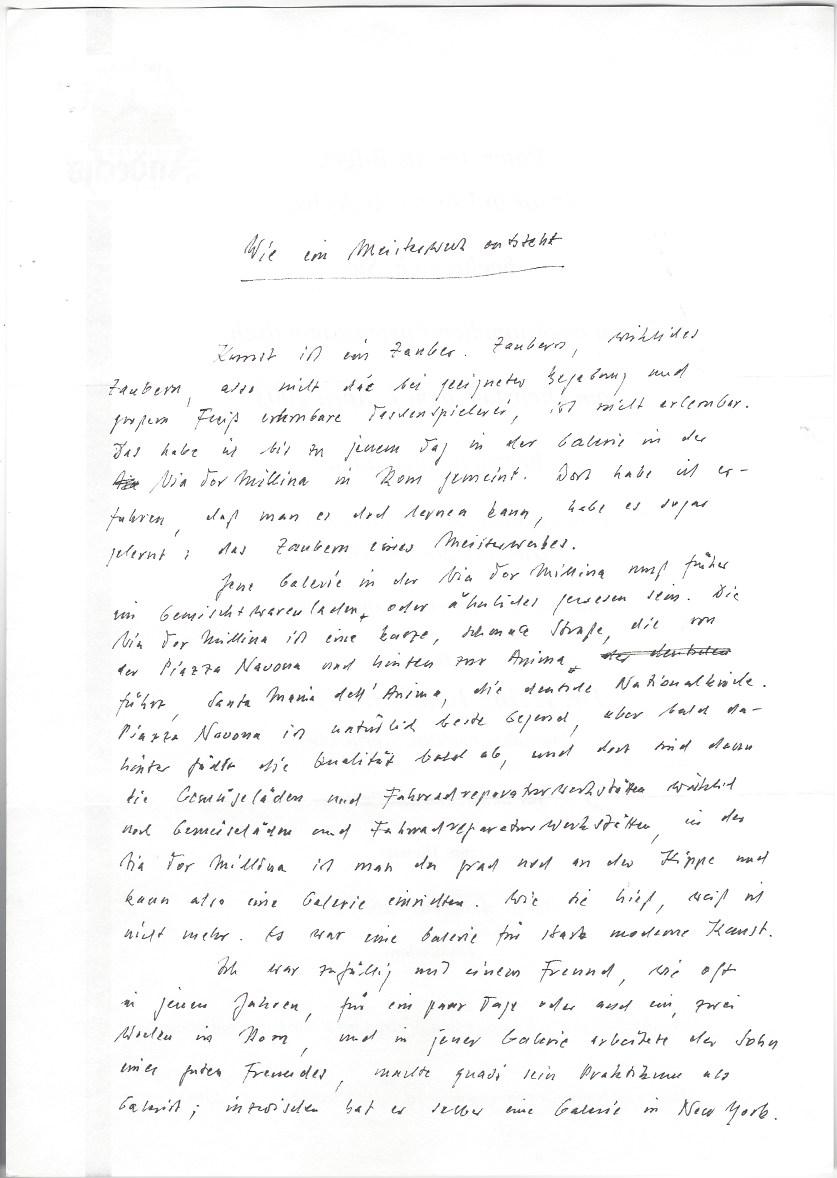 Wie ein Meisterwerk entsteht
Kunst ist ein Zauber. Zaubern, wirkliches
Zaubern, also nicht die bei geeigneter Begabung und
großem Fleiß erlernbare Taschenspielerei, ist nicht erlernbar.
Das habe ich bis zu jenem Tag in der Galerie in der
Via Tor Millina in Rom gemeint. Dort habe ich er-
fahren, daß man es doch lernen kann, habe es sogar
gelernt: das Zaubern eines Meisterwerkes.
Jene Galerie in der Via Tor Millina muß früher
ein Gemischtwarenladen oder ähnliches gewesen sein. Die
Via Tor Millina ist eine kurze, schmale Straße, die von
der Piazza Navona nach hinten zur Anima der deutschen
führt, Santa Maria dell'Anima, die deutsche Nationalkirche.
Piazza Navona ist natürlich beste Gegend, aber bald da-
hinter fällt die Qualität rasch ab, und dort sind dann
die Gemüseläden und Fahrradreparaturwerkstätten wirklich
noch Gemüseläden und Fahrradreparaturwerkstätten, in der
Via Tor Millina ist man da grad noch an der Kippe und
kann also eine Galerie einrichten. Wie sie hieß, weiß ich
nicht mehr. Es war eine Galerie für stark moderne Kunst.
Ich war zufällig mit einem Freund, wie oft
in jenen Jahren, für ein paar Tage oder auch ein, zwei
Wochen in Rom, und in jener Galerie arbeitete der Sohn
eines guten Freundes, machte quasi sein Praktikum als
Galerist; inzwischen hat er selber eine Galerie in New York.